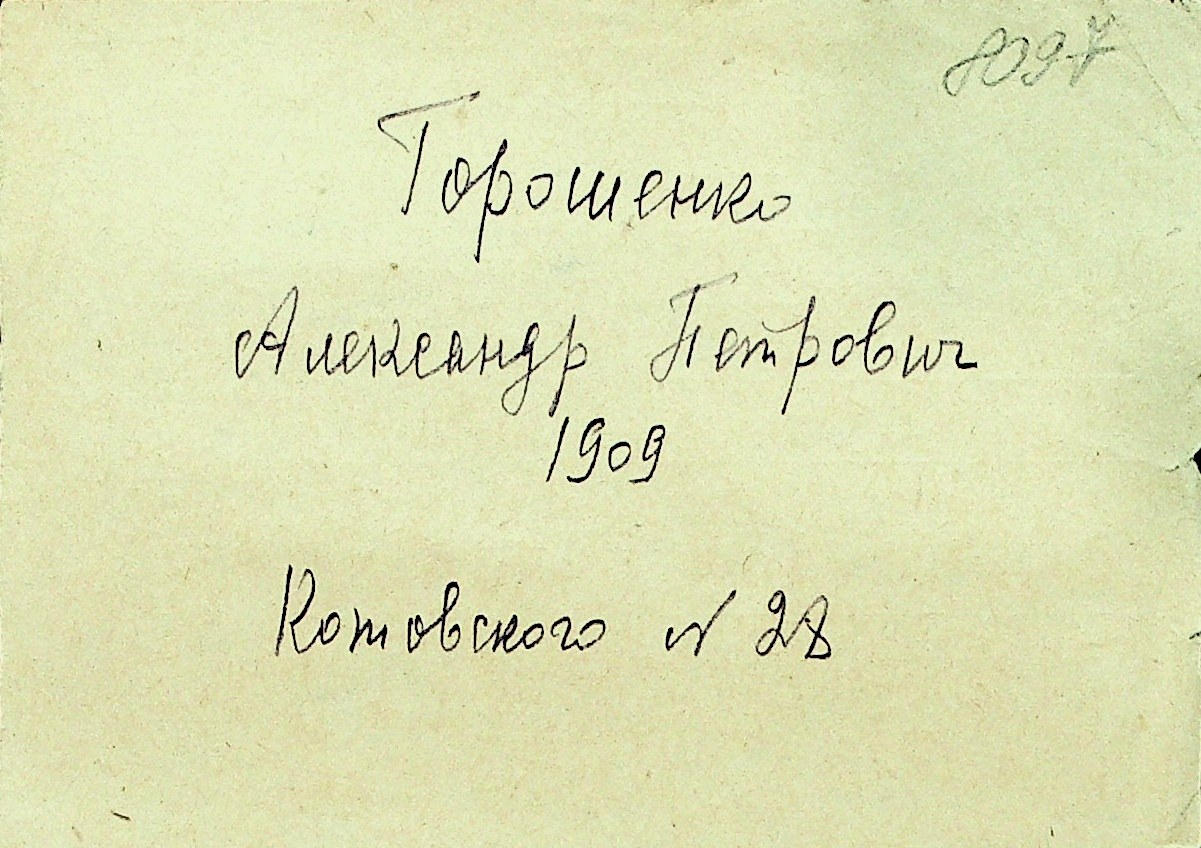 8097
Горошенко
Александр Петрович
1909
Котовского N 28